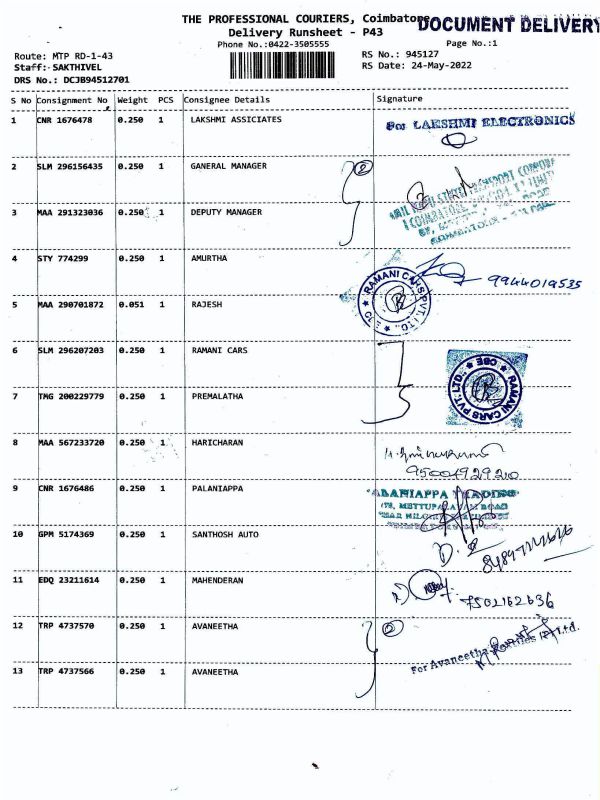 THE PROFESSIONAL COURIERS, Coimbatore
DOCUMENT DELIVERY
Delivery Runsheet - P43
Phone No.:0422-3505555
Page No.:1
Route: MTP RD-1-43
RS No.: 945127
Staff: SAKTHIVEL
RS Date: 24-May-2022
DRS No.: DCJB94512701
S No Consignment No Weight PCS Consignee Details Signature
1 CNR 1676478 0.250 1 LAKSHMI ASSICIATES For LAKSHMI ELECTRONICS
2 SLM 296156435 0.250 1 GANERAL MANAGER 2
3 MAA 291323036 0.250 1 DEPUTY MANAGER
4 STY 774299 0.250 1 AMURTHA 9944019535
RAMANI CARS PVT. LTD.,
5 MAA 290701872 0.051 1 RAJESH
6 SLM 296207203 0.250 1 RAMANI CARS
RAMANI CARS PVT. LTD., CBE
7 TMG 200229779 0.250 1 PREMALATHA
8 MAA 567233720 0.250 1 HARICHARAN
9500492920
9 CNR 1676486 0.250 1 PALANIAPPA PALANIAPPA TRADING
METTUPALAYAM ROAD
10 GPM 5174369 0.250 1 SANTHOSH AUTO
11 EDQ 23211614 0.250 1 MAHENDERAN
7502162636
12 TRP 4737570 0.250 1 AVANEETHA 2
For Avaneetha Textiles (P) Ltd.
13 TRP 4737566 0.250 1 AVANEETHA